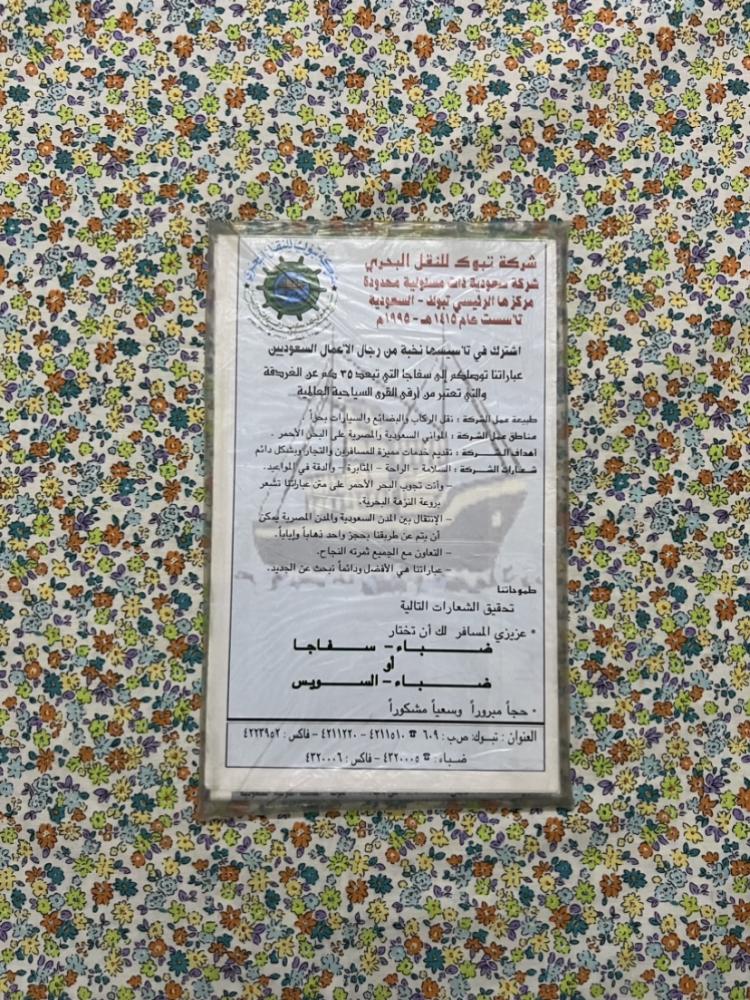 شركة تبوك للنقل البحري
شركة سعودية ذات مسئولية محدودة
مركزها الرئيسي تبوك - السعودية
تأسست عام ١٤١٥هـ - ١٩٩٥م
اشترك في تأسيسها نخبة من رجال الأعمال السعوديين
عباراتنا توصلكم إلى سفاجا التي تبعد ٣٥ كم عن الغردقة
والتي تعتبر من أرقى القرى السياحية العالمية
طبيعة عمل الشركة : نقل الركاب والبضائع والسيارات بحراً .
مناطق عمل الشركة : الموانئ السعودية والمصرية على البحر الأحمر .
أهداف الشركة : تقديم خدمات مميزة للمسافرين والتجار وبشكل دائم
شعارات الشركة : السلامة - الراحة - المثابرة - والدقة في المواعيد.
- وأنت تجوب البحر الأحمر على متن عباراتنا تشعر
بروعة النزهة البحرية.
- الإنتقال بين المدن السعودية والمدن المصرية يمكن
أن يتم عن طريقنا بحجز واحد ذهاباً وإياباً.
- التعاون مع الجميع ثمرته النجاح.
- عباراتنا هي الأفضل ودائماً نبحث عن الجديد.
طموحاتنا
تحقيق الشعارات التالية
* عزيزي المسافر لك أن تختار
ضباء - سفاجا
أو
ضباء - السويس
* حجاً مبروراً وسعياً مشكوراً
العنوان : تبوك: ص.ب : ٦٠٩ ☎ ٤٢١١٥١٠ - ٤٢١١٢٢٠ - فاكس : ٤٢٢٣٩٥٢
ضباء: ☎ ٤٣٢٠٠٠٥ - فاكس : ٤٣٢٠٠٠٦